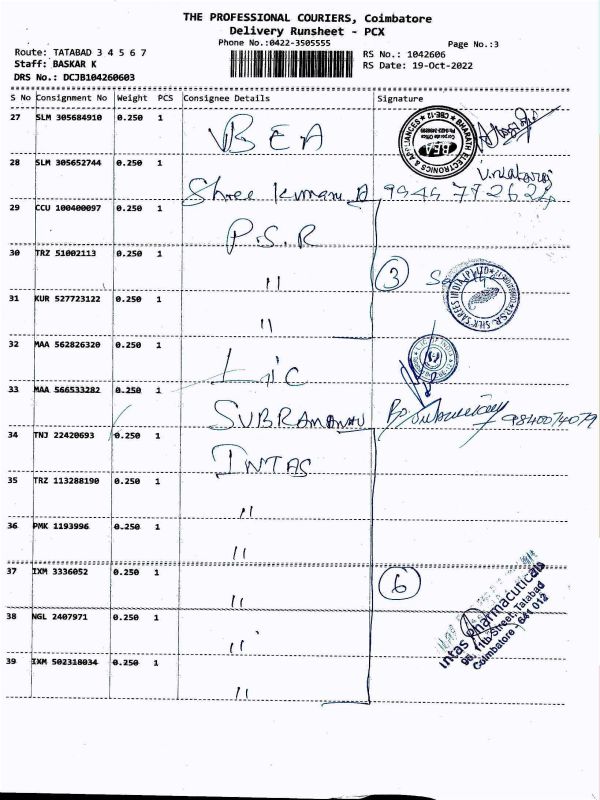 THE PROFESSIONAL COURIERS, Coimbatore
Delivery Runsheet - PCX
Phone No.:0422-3505555
Page No.:3
Route: TATABAD 3 4 5 6 7
RS No.: 1042606
Staff: BASKAR K
RS Date: 19-Oct-2022
DRS No.: DCJB104260603
S No Consignment No Weight PCS Consignee Details Signature
27 SLM 305684910 0.250 1 BEA
BHARATH ELECTRONICS & APPLIANCES ★ CBE-12 ★
Corporate Office
BEA
28 SLM 305652744 0.250 1 Shree Kumaran
29 CCU 100400097 0.250 1 P.S.R
30 TRZ 51002113 0.250 1 "
3
P.S.R. SILK SAREES INDIA (P) LTD
31 KUR 527723122 0.250 1 "
32 MAA 562826320 0.250 1 LIC
33 MAA 566533282 0.250 1 SUBRAMANAU
9840074079
34 TNJ 22420693 0.250 1 INTAS
35 TRZ 113288190 0.250 1 "
36 PMK 1193996 0.250 1 "
37 IXM 3336052 0.250 1 "
6
Intas Pharmaceuticals
98, 11th Street, Tatabad
Coimbatore - 641 012
38 NGL 2407971 0.250 1 "
39 IXM 502318034 0.250 1 "